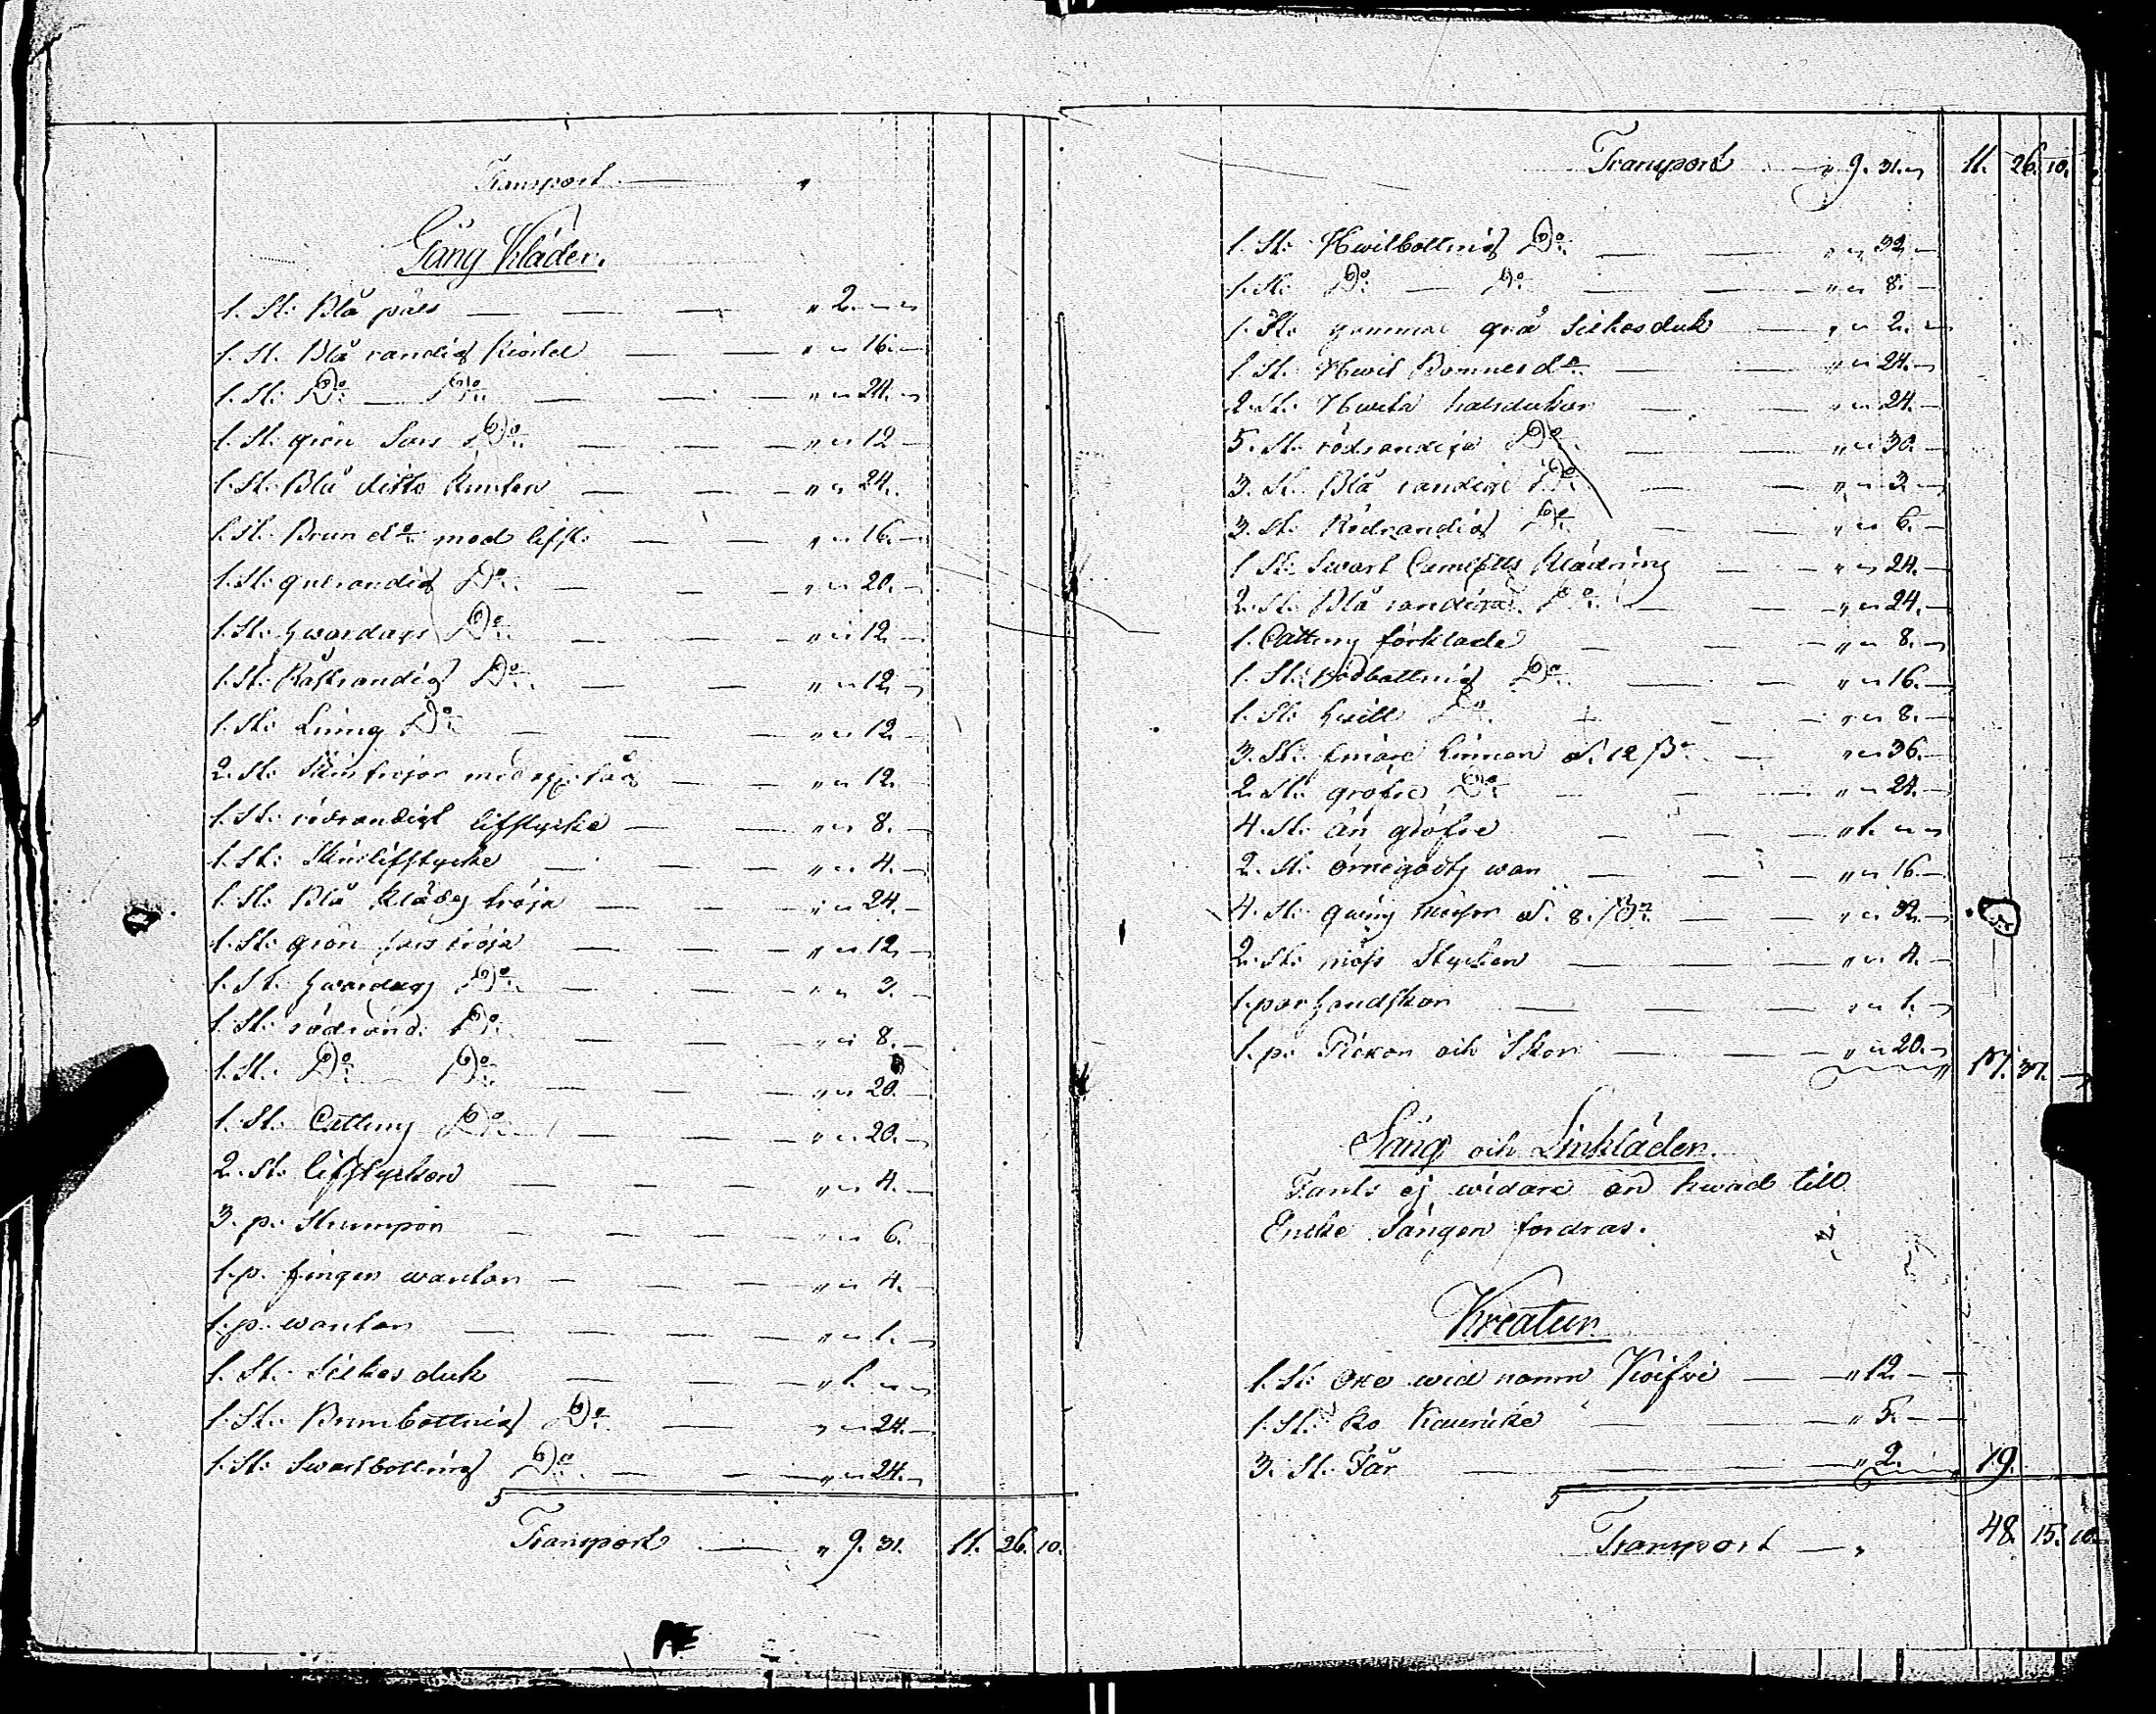 Transport
Gång Kläder.
1. St: Blå päls — — — " 2. — —
1. St. Blå randig Kiortel — — " " 16. —
1. St: Do — Do — — — " " 24. —
1. St: grön Sars Do — — — " " 12 —
1. St: Blå ditto — — — " " 24.
1. St. Brun do med lifst: — — " " 16. —
1. St: Do — — — " " 20. —
1. St: hwardags Do — — — " " 12 —
1. St: Do — — " " 12 —
1. St: Do — — — " " 12 —
2. St: med — — " " 12.
1. St: rödrandigt lifstycke — — " " 8. —
1. St: Skinslifstycke — — — " " 4. —
1. St: Blå klädes tröja — — — " " 24. —
1. St: grön sars tröja — — — " " 12 —
1. St. hwardags Do — — — " " 3. —
1. St: rödrand: Do — — — " " 8. —
1. St. Do — Do — — — " " 20. —
1. St: Cattuns Do — — — " " 20. —
2. St: lifstycken — — — " " 4. —
3. p: Strumpor — — — " " 6.
1. p. finger wantar — — — " " 4. —
1. p: wantar — — — " " 1. —
1. St: Silkes duk — — — " 1. — —
1. St: Brunbottnig Do — — " " 24. —
1. St: Swartbottnig Do — — — " " 24. —
Transport — " 9. 31. 11. 26. 10.
Transport — " 9. 31. — 11. 26. 10.
1. St: Hwitbottnig Do — — " " 32. —
1. St: Do — Do — — — " " 8. —
1. St: gammal grå Silkesduk — " " 2. —
1. St: Hwit do — — " " 24. —
2. St: Hwita halsdukar — — " " 24. —
5. St. rödrandiga Do — — " " 30. —
3. St: Blå randiga Do — — " " 3. —
3. St: Rödrandig Do — — " " 6. —
1 St: Swart Camlotts Klädning — — " " 24. —
2. St. Blå randiga Do — — " " 24. —
1. Cattuns förkläde — — " " 8. —
1. St: Rödbottnig Do — — " " 16. —
1. St: hwitt Do — — " " 8. —
3. St: Linnen a 12 ß — " " 36. —
2. St: gröfre Do — — — " " 24. —
4. St: än gröfre — — — " 1. — —
2. St: war — — — " " 16. —
4. St: a 8. ß — — " " 32. —
2. St: möss Stycken — — — " " 4. —
1. par handskar — — — " " 1. —
1. p: Kiexor och Skor — — — " " 20. — 17. 37. —
Säng och Linkläder.
Fants ej widare än hwad till
Enke Sängen fordras.
Kreatur
1. St: Oxe wid namn — " 12 — —
1. St: ko — — " 5. — —
3. St. Får — — — " 2. 19.
Transport — " 48. 15. 10.